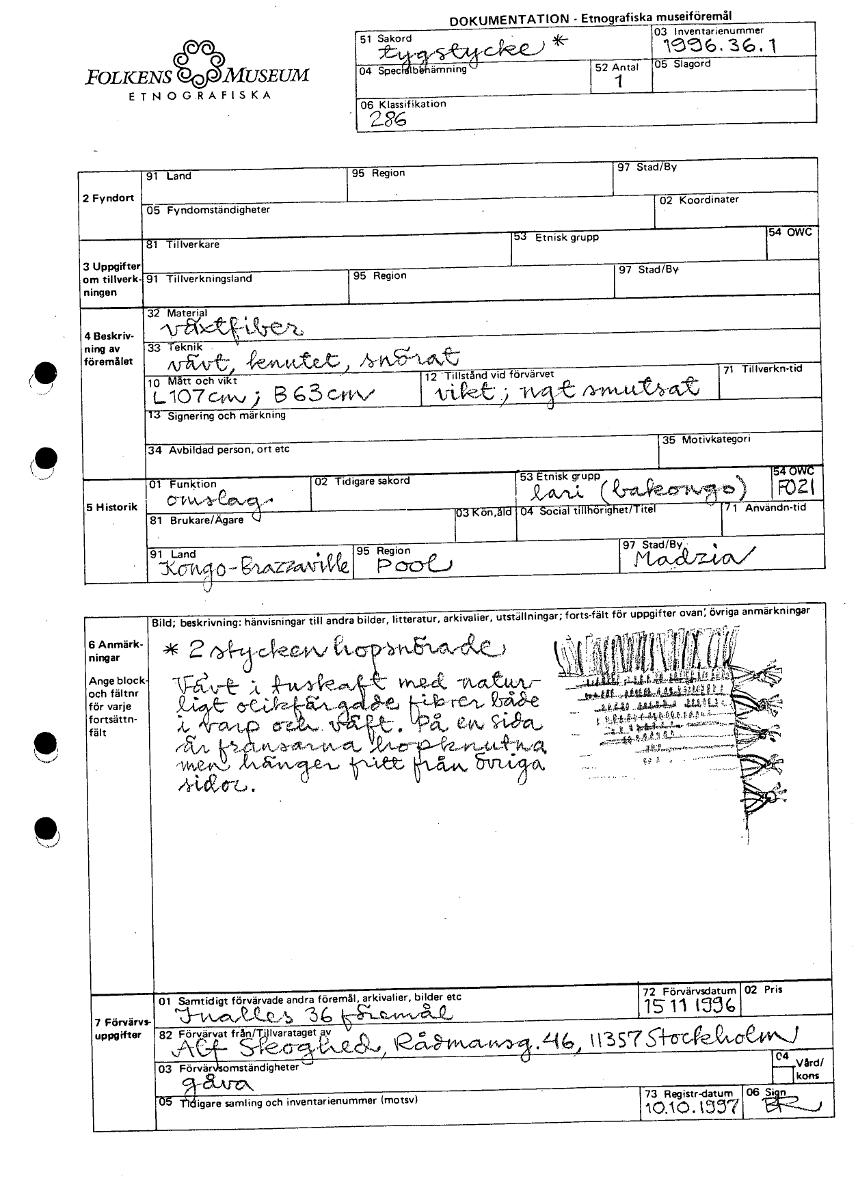 DOKUMENTATION - Etnografiska museiföremål
FOLKENS MUSEUM
ETNOGRAFISKA
51 Sakord
tygstycke *
03 Inventarienummer
1996.36.1
04 Specialbenämning
52 Antal
1
05 Slagord
06 Klassifikation
286
2 Fyndort
91 Land
95 Region
97 Stad/By
05 Fyndomständigheter
02 Koordinater
3 Uppgifter
om tillverk-
ningen
81 Tillverkare
53 Etnisk grupp
54 OWC
91 Tillverkningsland
95 Region
97 Stad/By
4 Beskriv-
ning av
föremålet
32 Material
växtfiber
33 Teknik
vävt, knutet, snörat
10 Mått och vikt
L 107 cm ; B 63 cm
12 Tillstånd vid förvärvet
vikt ; ngt smutsat
71 Tillverkn-tid
13 Signering och märkning
34 Avbildad person, ort etc
35 Motivkategori
5 Historik
01 Funktion
omslag.
02 Tidigare sakord
53 Etnisk grupp
lari (bakongo)
54 OWC
F021
81 Brukare/Ägare
03 Kön,åld
04 Social tillhörighet/Titel
71 Användn-tid
91 Land
Kongo-Brazzaville
95 Region
Pool
97 Stad/By
Madzia
6 Anmärk-
ningar
Ange block-
och fältnr
för varje
fortsättn-
fält
Bild; beskrivning: hänvisningar till andra bilder, litteratur, arkivalier, utställningar; forts-fält för uppgifter ovan; övriga anmärkningar
* 2 stycken hopsnörade
Vävt i tuskaft med natur
ligt olikfärgade fibrer både
i varp och väft. På en sida
är fransarna hopknutna
men hänger fritt från övriga
sidor.
7 Förvärvs-
uppgifter
01 Samtidigt förvärvade andra föremål, arkivalier, bilder etc
Inalles 36 föremål
72 Förvärvsdatum
15 11 1996
02 Pris
82 Förvärvat från/Tillvarataget av
Alf Skoghed, Rådmansg. 46, 11357 Stockholm
03 Förvärvsomständigheter
gåva
04
Vård/
kons
05 Tidigare samling och inventarienummer (motsv)
73 Registr-datum
10.10.1997
06 Sign
BR